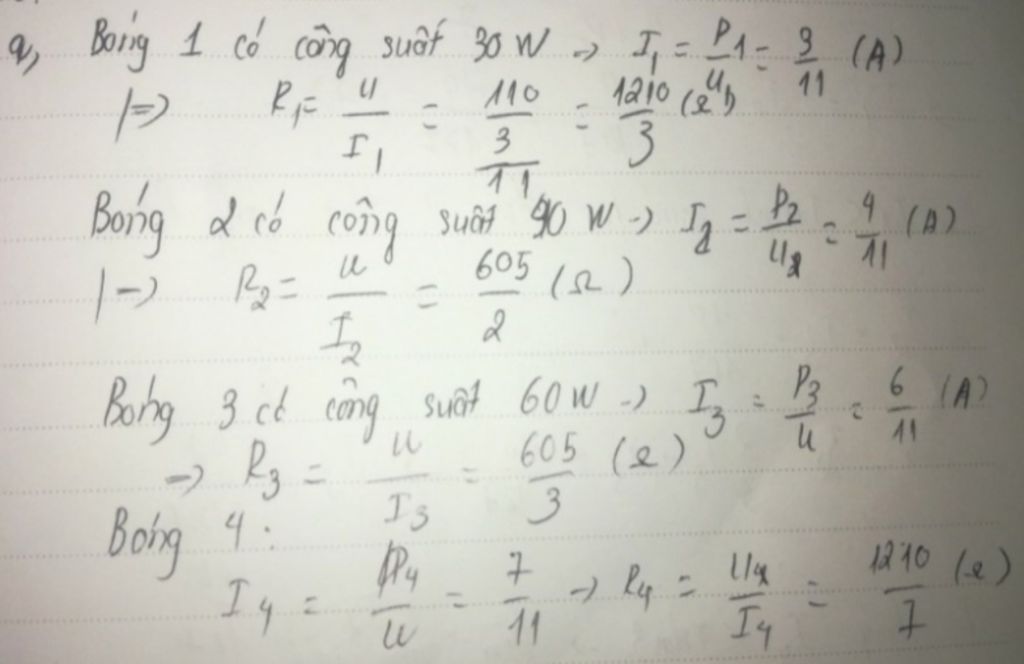 a, Bóng 1 có công suất 30 W → I₁ = P₁/U₁ = 3/11 (A)
|=> R₁ = U/I₁ = 110/(3/11) = 1210/3 (Ω)
Bóng 2 có công suất 40 W → I₂ = P₂/U₂ = 4/11 (A)
|→ R₂ = U/I₂ = 605/2 (Ω)
Bóng 3 có công suất 60 W → I₃ = P₃/U = 6/11 (A)
→ R₃ = U/I₃ = 605/3 (Ω)
Bóng 4 :
I₄ = P₄/U = 7/11 → R₄ = U₄/I₄ = 1210/7 (Ω)